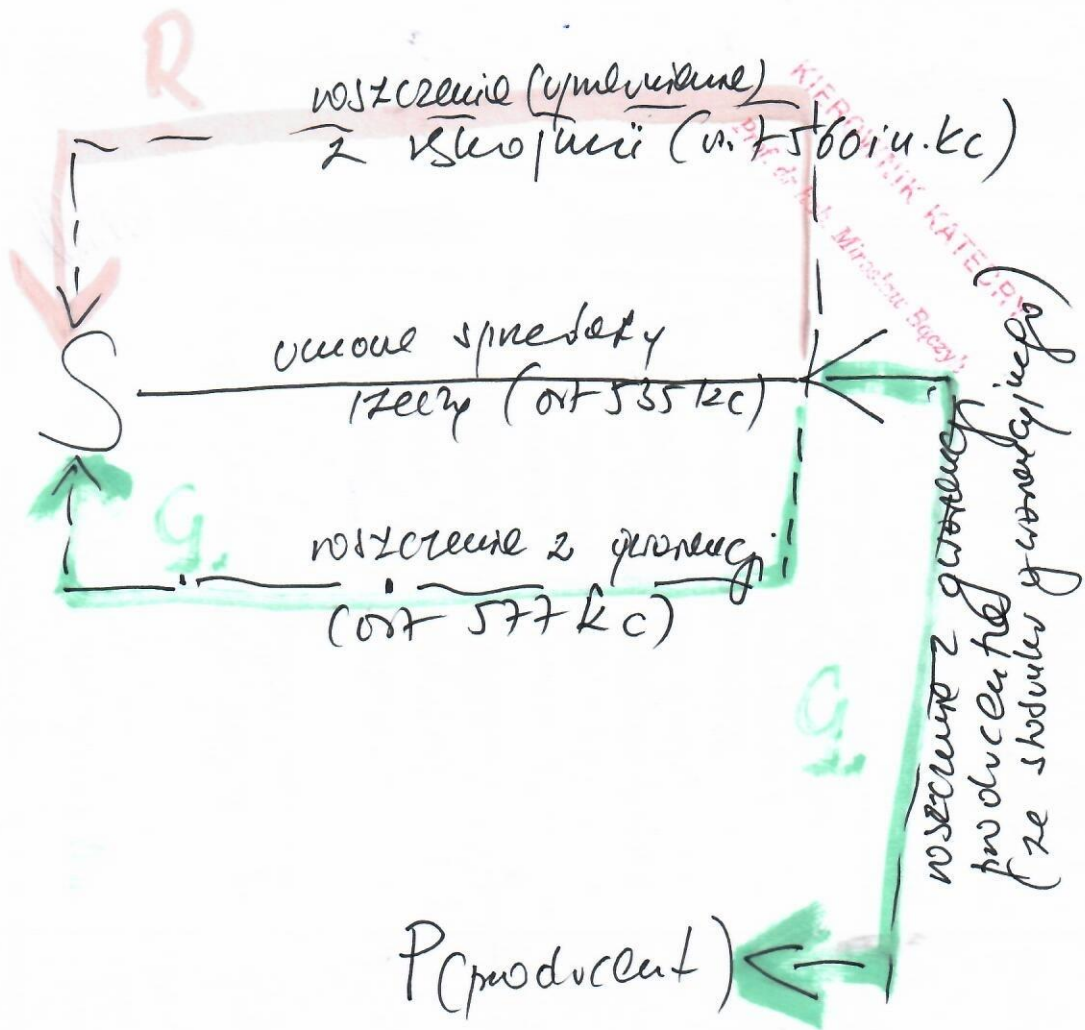 R
roszczenie (uprawnienie)
z rękojmii (art. 560 i n. kc)
KIEROWNIK KATEDRY
Prof. dr hab. Mirosław Bączyk
S
umowa sprzedaży
rzeczy (art 535 kc)
K
G.
roszczenie z gwarancji
(art 577 kc)
G.
roszczenie z gwarancji
producenta
(ze stosunku gwarancyjnego)
P (producent)